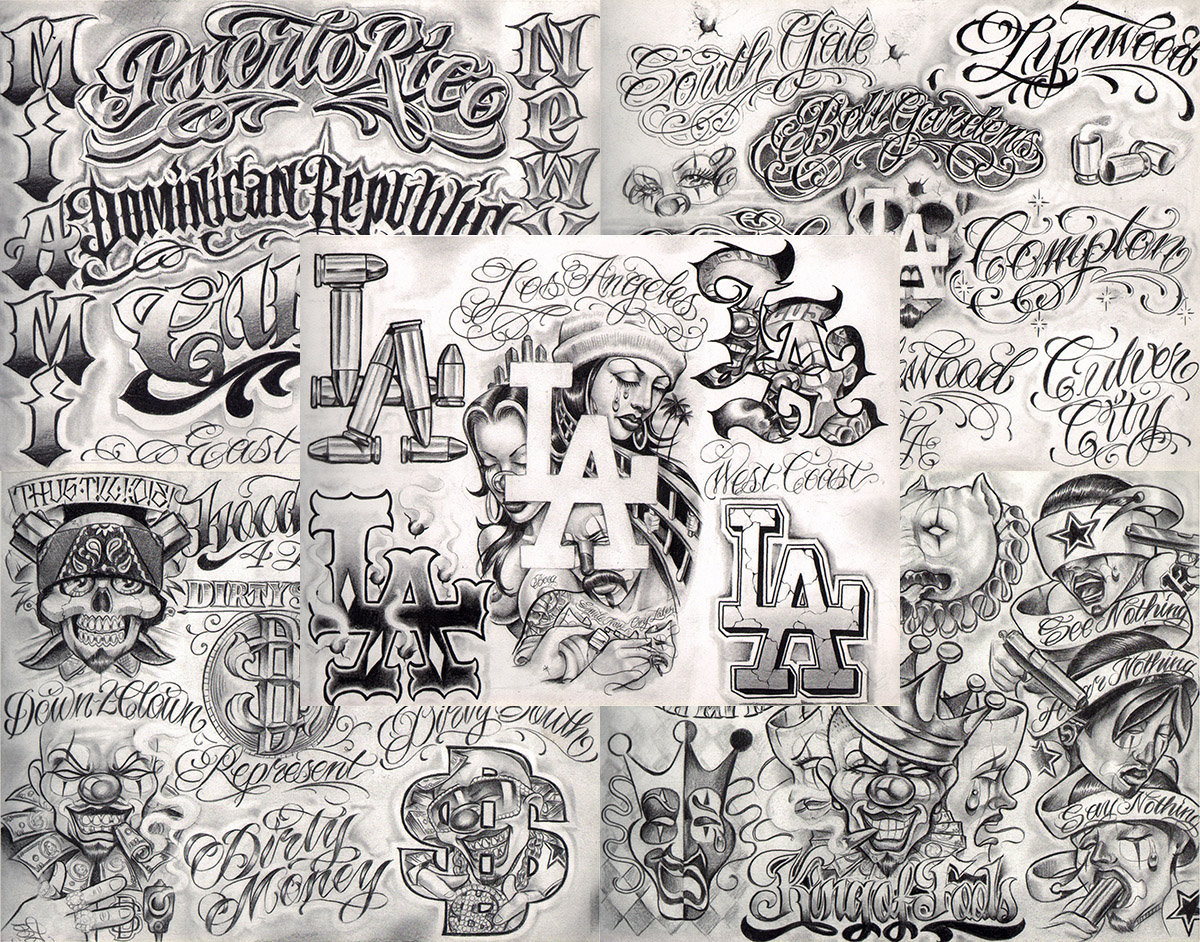 Miami
Puerto Rico
Dominican Republic
East
South Gate
Lynwood
Bell Gardens
LA
Compton
wood
Culver
City
LA
Los Angeles
LA
LA
West Coast
LA
LA
THUG-TILL-I-DIE!
Hood
DIRTY S
$
Down 2 Clown
Represent
Dirty South
Dirty
Money
$
See Nothing
Hear Nothing
Say Nothing
King of Fools